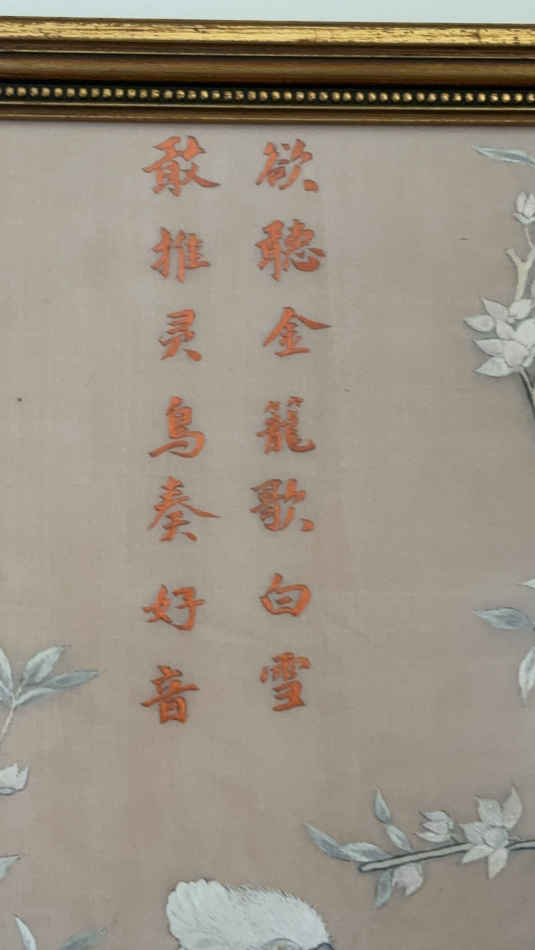 欲聽金籠歌白雪
敢推灵鳥奏好音